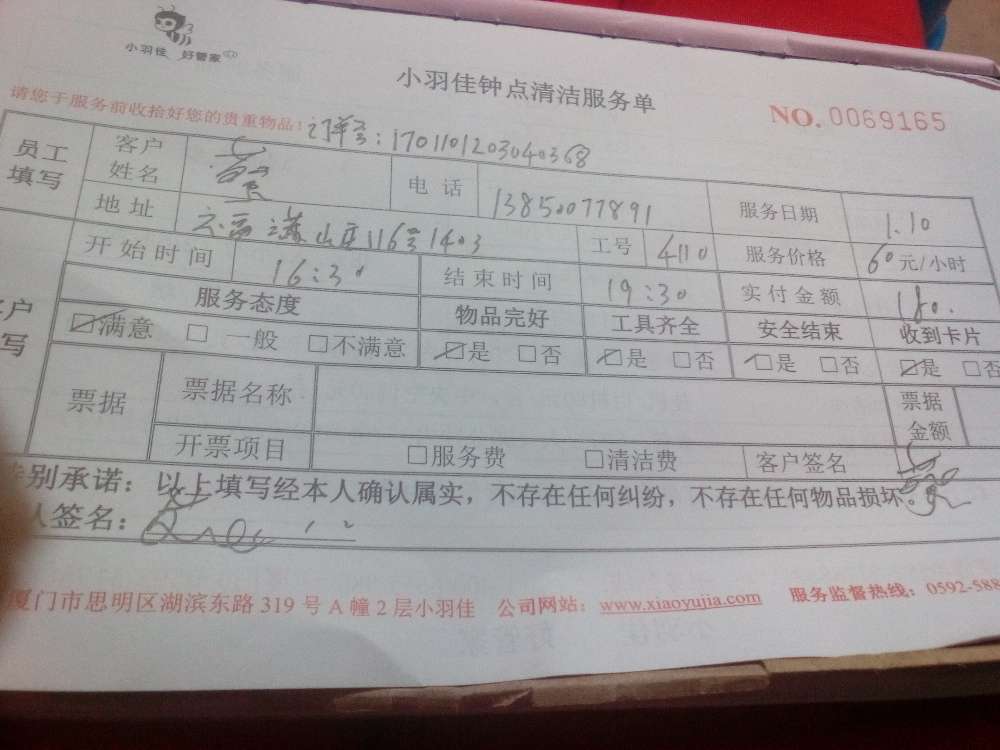 小羽佳 好管家
小羽佳钟点清洁服务单
请您于服务前收拾好您的贵重物品!
NO. 0069165
订单号:1701101203040368
员工填写 客户姓名 电话 13850077891 服务日期 1.10
地址 116号1403 工号 4110 服务价格 60元/小时
开始时间 16:30 结束时间 19:30 实付金额 180.
服务态度 物品完好 工具齐全 安全结束 收到卡片
户写 ☑满意 □一般 □不满意 ☑是 □否 ☑是 □否 ☑是 □否 ☑是 □否
票据 票据名称 票据金额
开票项目 □服务费 □清洁费 客户签名
特别承诺:以上填写经本人确认属实,不存在任何纠纷,不存在任何物品损坏。
人签名:
厦门市思明区湖滨东路 319 号 A 幢 2 层小羽佳 公司网站:www.xiaoyujia.com 服务监督热线:0592-588